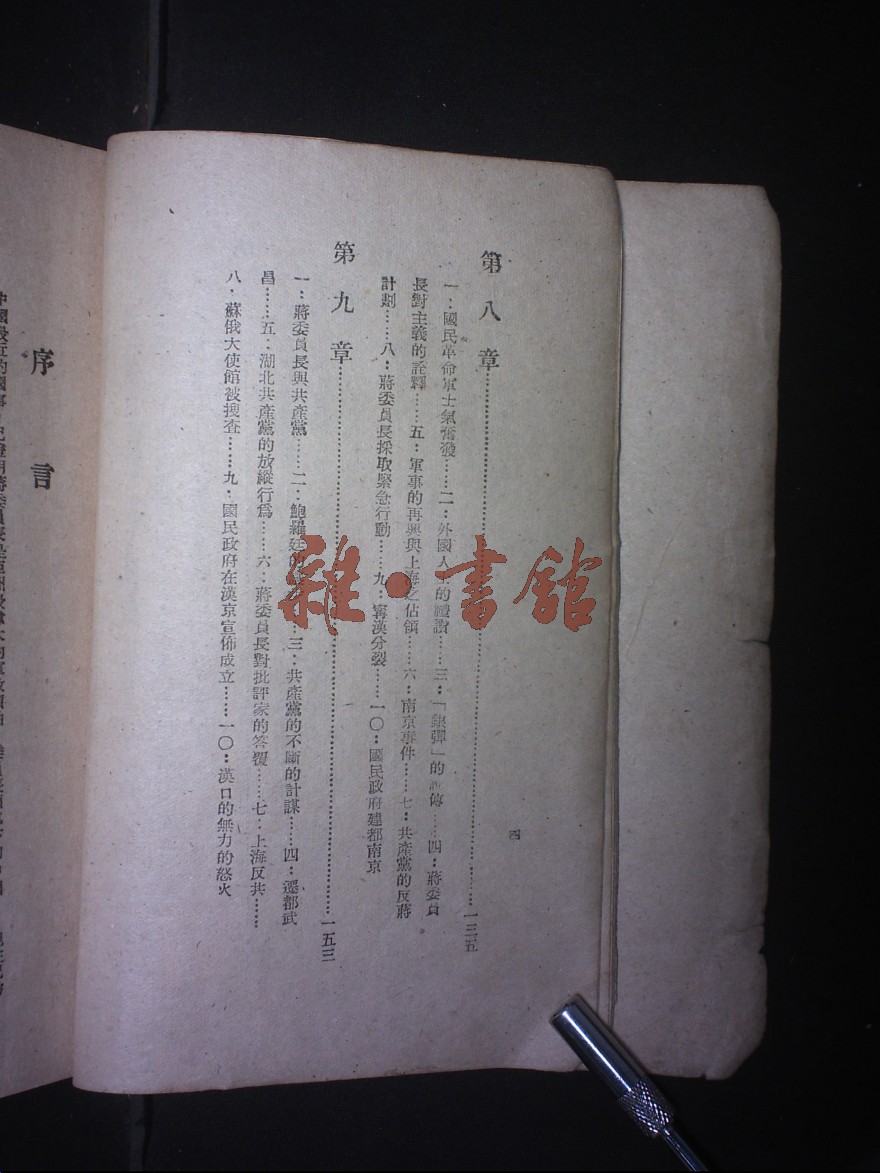 第八章……一三五
一：國民革命軍士氣奮發……二：外國人的禮讚……三：「銀彈」的 傳……四：蔣委員
長對主義的詮釋……五：軍事的再興與上海之佔領……六：南京事件……七：共產黨的反蔣
計劃……八：蔣委員長採取緊急行動……九：寧漢分裂……一〇：國民政府建都南京
第九章……一五三
一：蔣委員長與共產黨……二：鮑羅廷的……三：共產黨的不斷的計謀……四：遷都武
昌……五：湖北共產黨的放縱行爲……六：蔣委員長對批評家的答覆……七．上海反共……
八．蘇俄大使館被搜查……九．國民政府在漢京宣佈成立……一〇：漢口的無力的怒火
四
序言
雜·書館